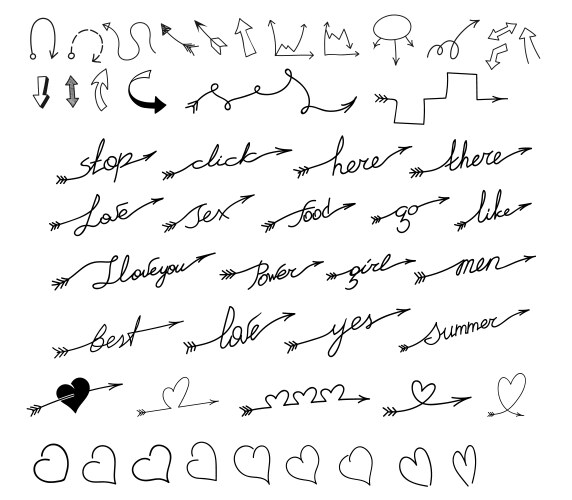 stop click here there
Love Sex food go like
I love you Power girl men
Best love yes summer